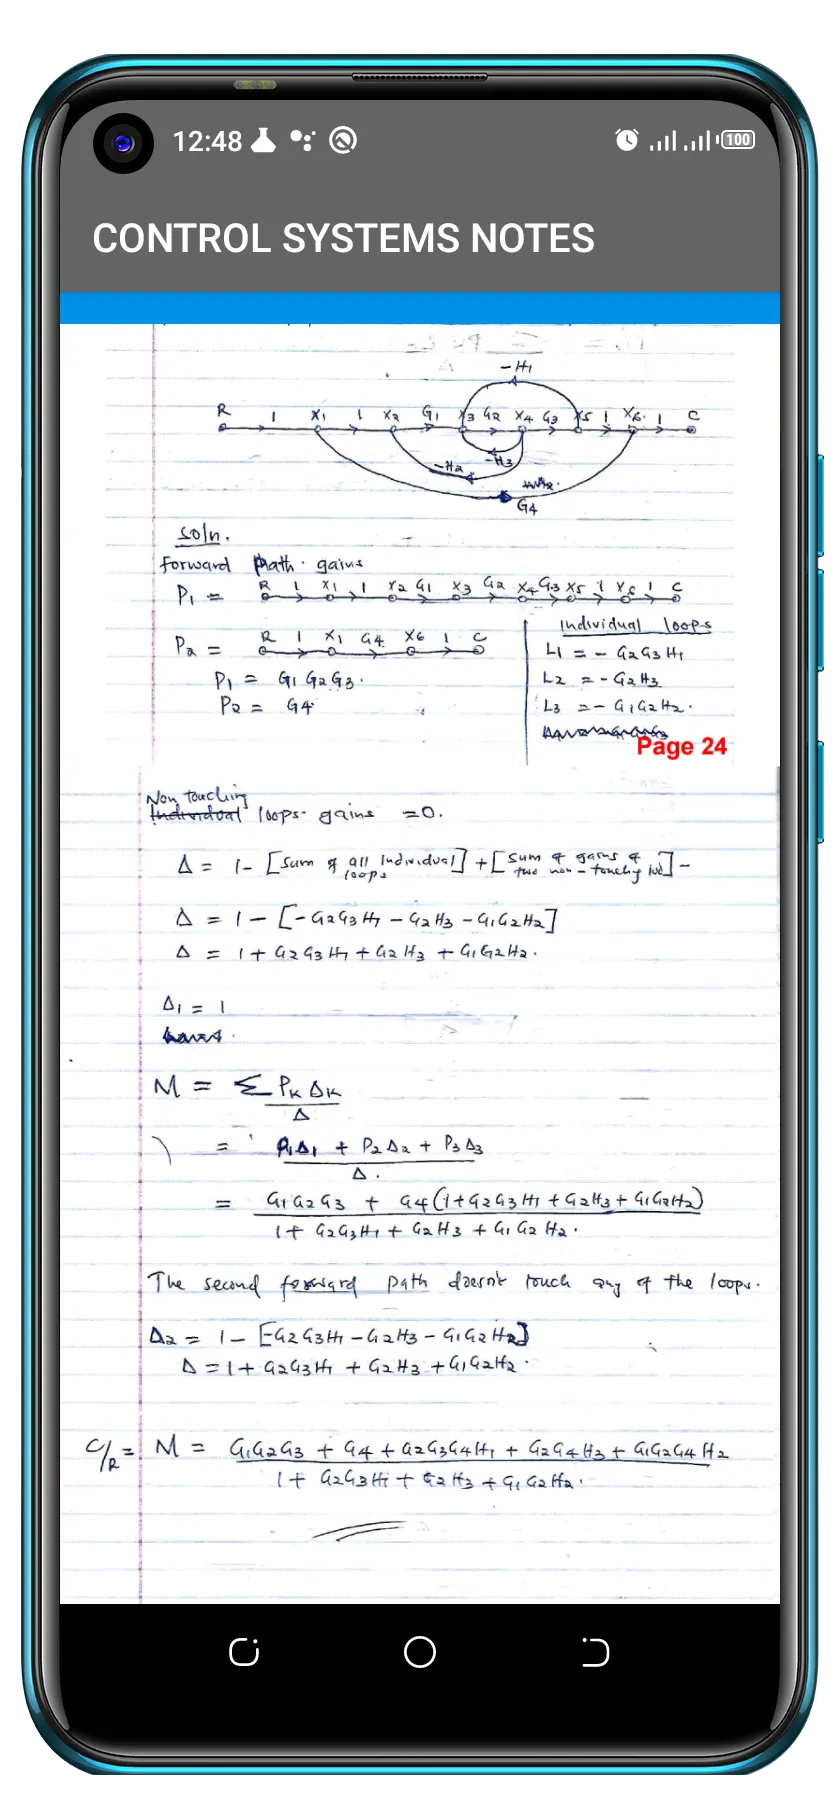 12:48
100
CONTROL SYSTEMS NOTES
-H1
R 1 X1 1 X2 G1 X3 G2 X4 G3 X5 1 X6 1 C
-H2 -H3
G4
Soln.
Forward Path gains
P1 = R 1 X1 1 X2 G1 X3 G2 X4 G3 X5 1 X6 1 C
P2 = R 1 X1 G4 X6 1 C
P1 = G1 G2 G3.
P2 = G4
Individual loops
L1 = - G2G3H1
L2 = - G2H3
L3 = - G1G2H2.
Page 24
Non touching
Individual loops gains = 0.
Δ = 1- [Sum of all Individual loops] + [Sum of gains of two non-touching] -
Δ = 1 - [-G2G3H1 - G2H3 - G1G2H2]
Δ = 1 + G2G3H1 + G2H3 + G1G2H2.
Δ1 = 1
M = Σ PK ΔK
Δ
= P1Δ1 + P2Δ2 + P3Δ3
Δ.
= G1G2G3 + G4(1+G2G3H1 + G2H3 + G1G2H2)
1+ G2G3H1 + G2H3 + G1G2H2.
The second forward path doesn't touch any of the loops.
Δ2 = 1 - [-G2G3H1 - G2H3 - G1G2H2]
Δ = 1+ G2G3H1 + G2H3 + G1G2H2.
C/R = M = G1G2G3 + G4 + G2G3G4H1 + G2G4H3 + G1G2G4H2
1+ G2G3H1 + G2H3 + G1G2H2.